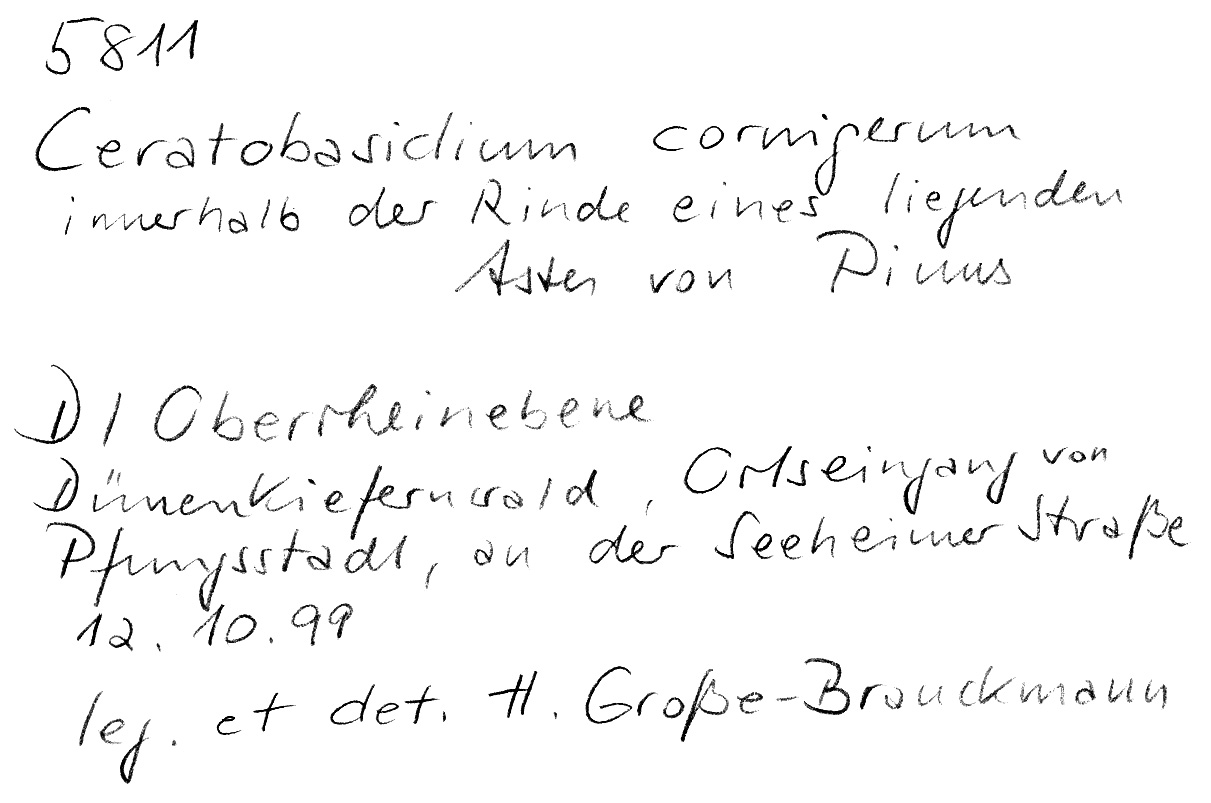 5811
Ceratobasidium cornigerum
innerhalb der Rinde eines liegenden
Astes von Pinus
D / Oberrheinebene
Dünenkiefernwald, Ortseingang von
Pfungsstadt, an der Seeheimer Straße
12.10.99
leg. et det. H. Große-Brauckmann